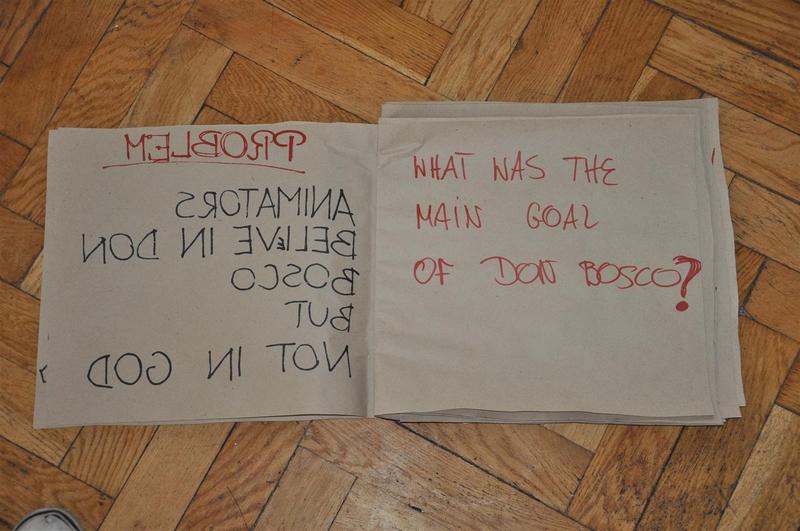 PROBLEM
ANIMATORS
BELEVE IN DON
BOSCO
BUT
NOT IN GOD
WHAT WAS THE
MAIN GOAL
OF DON BOSCO?